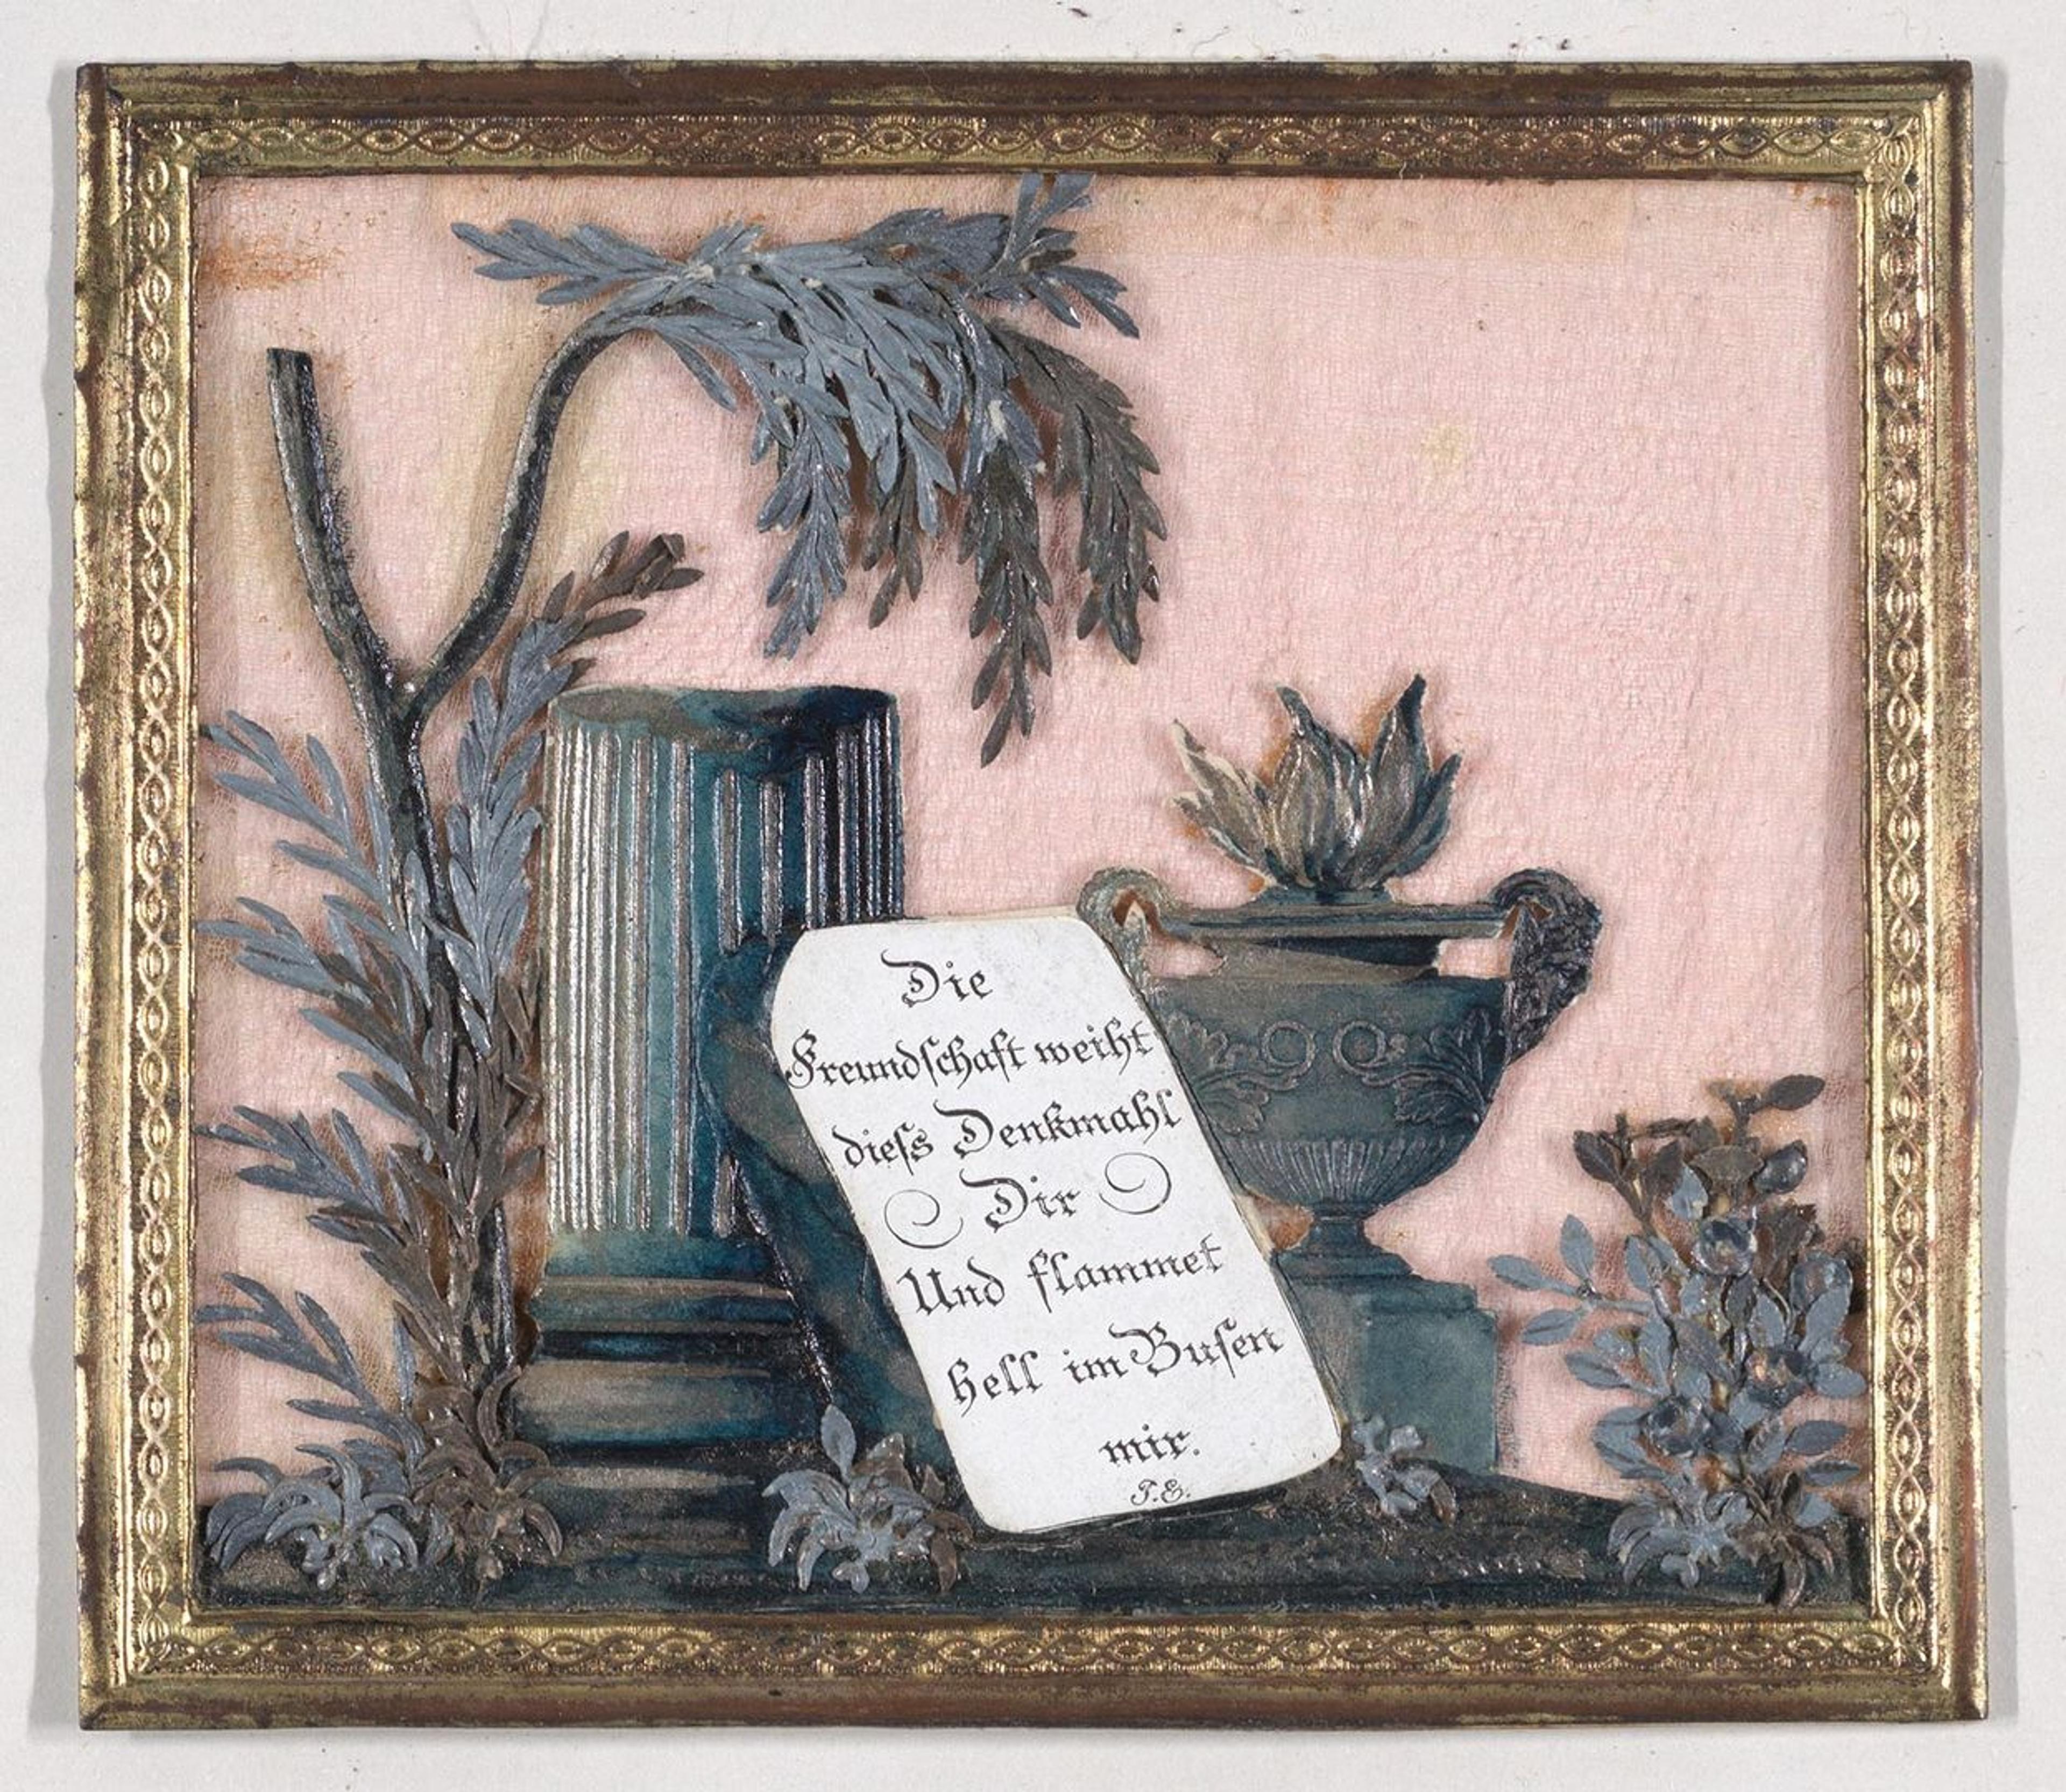 Die
Freundſchaft weiht
dieſs Denkmahl
Dir
Und flammet
hell im Buſen
mir.
J.E.